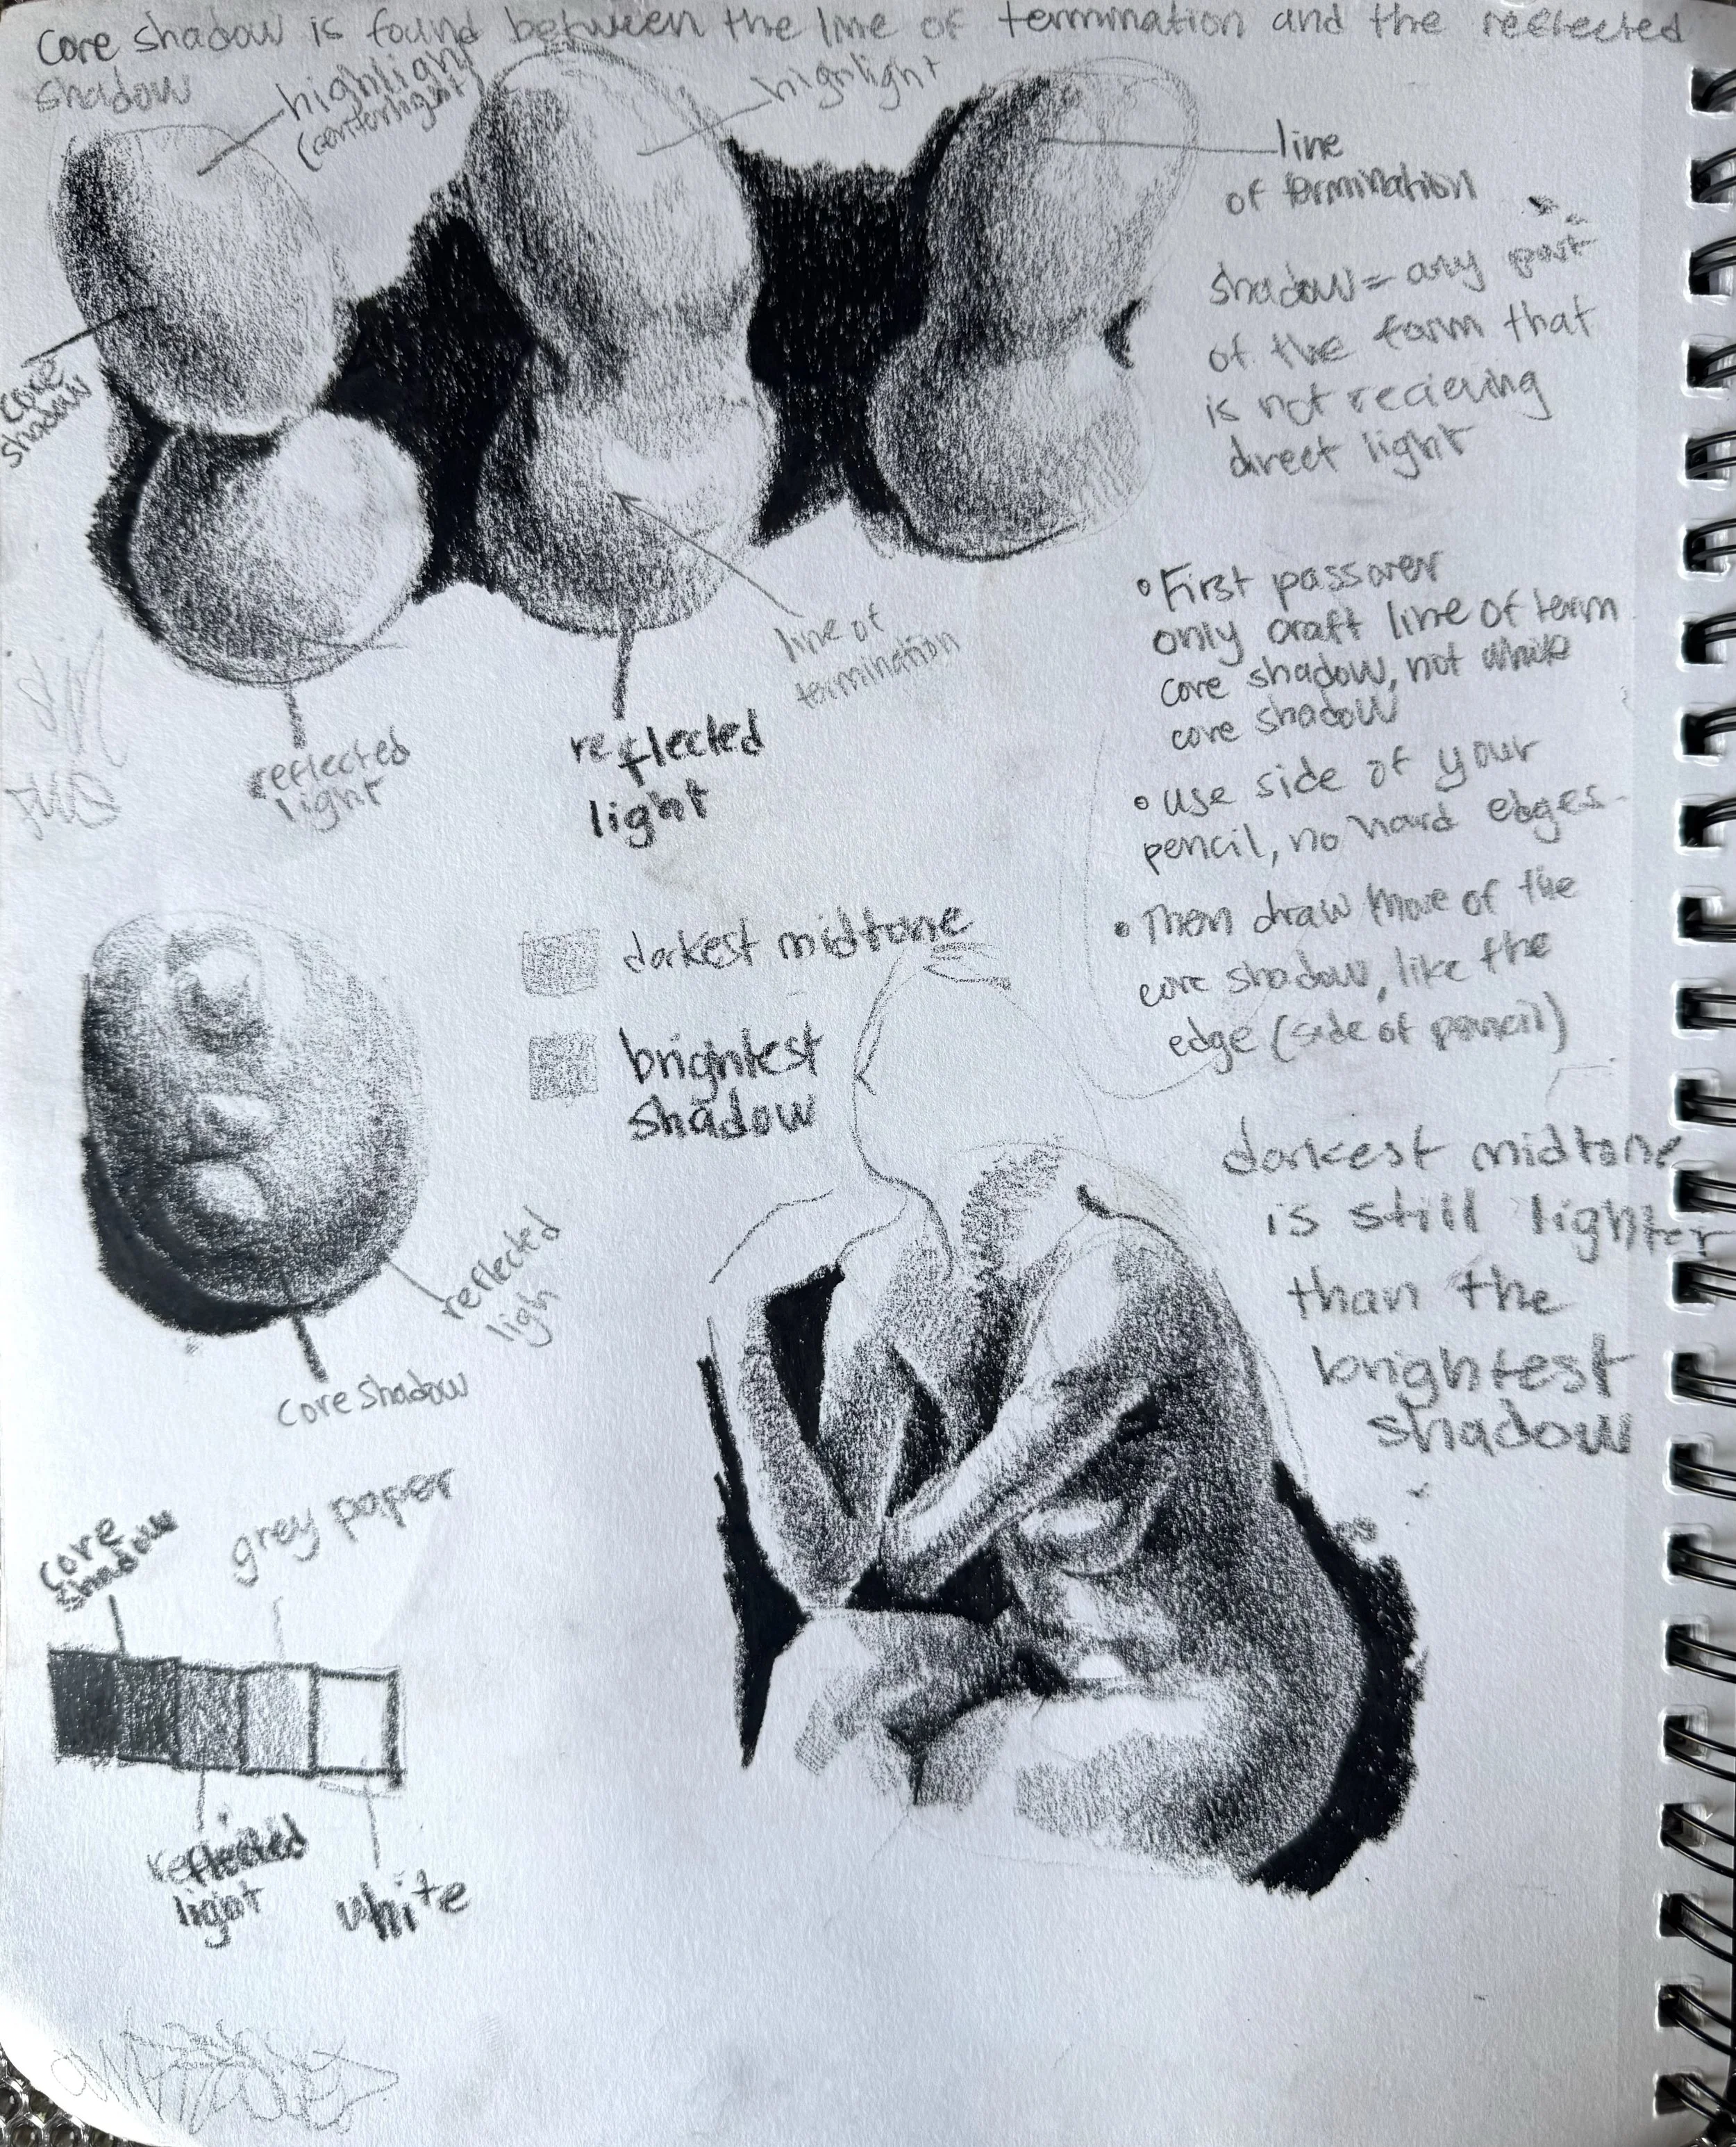 Core shadow is found between the line of termination and the reflected
shadow
highlight
(centerlight)
highlight
line
of termination
core
shadow
shadow = any part
of the form that
is not recieving
direct light
line of
termination
reflected
light
reflected
light
• First passover
only craft line of term
core shadow, not while
core shadow
• use side of your
pencil, no hard edges.
• Then draw more of the
core shadow, like the
edge (side of pencil)
darkest midtone
brightest
shadow
darkest midtone
is still lighter
than the
brightest
shadow
reflected
ligh
core shadow
core
shadow
grey paper
reflected
light
white